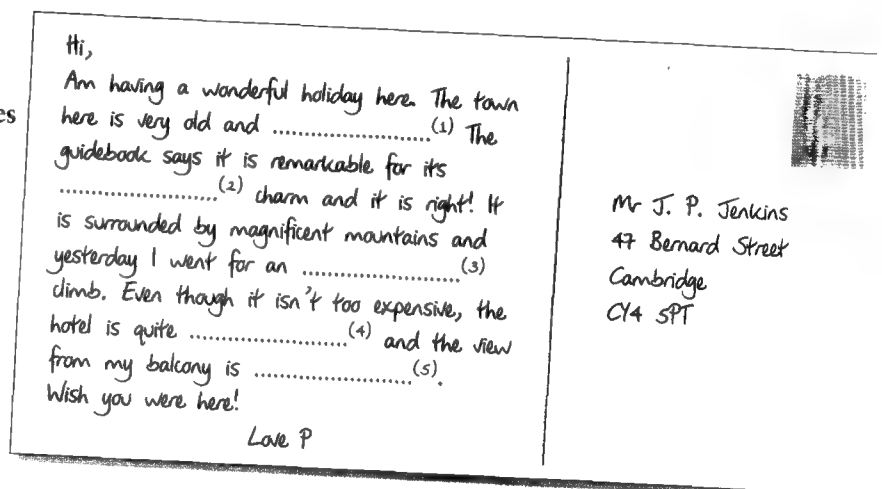 es
Hi,
Am having a wonderful holiday here. The town
here is very old and ........................(1) The
guidebook says it is remarkable for its
........................(2) charm and it is right! It
is surrounded by magnificent mountains and
yesterday I went for an ........................(3)
climb. Even though it isn't too expensive, the
hotel is quite ........................(4) and the view
from my balcony is ........................(5).
Wish you were here!
Love P
Mr J. P. Jenkins
47 Bernard Street
Cambridge
CY4 5PT